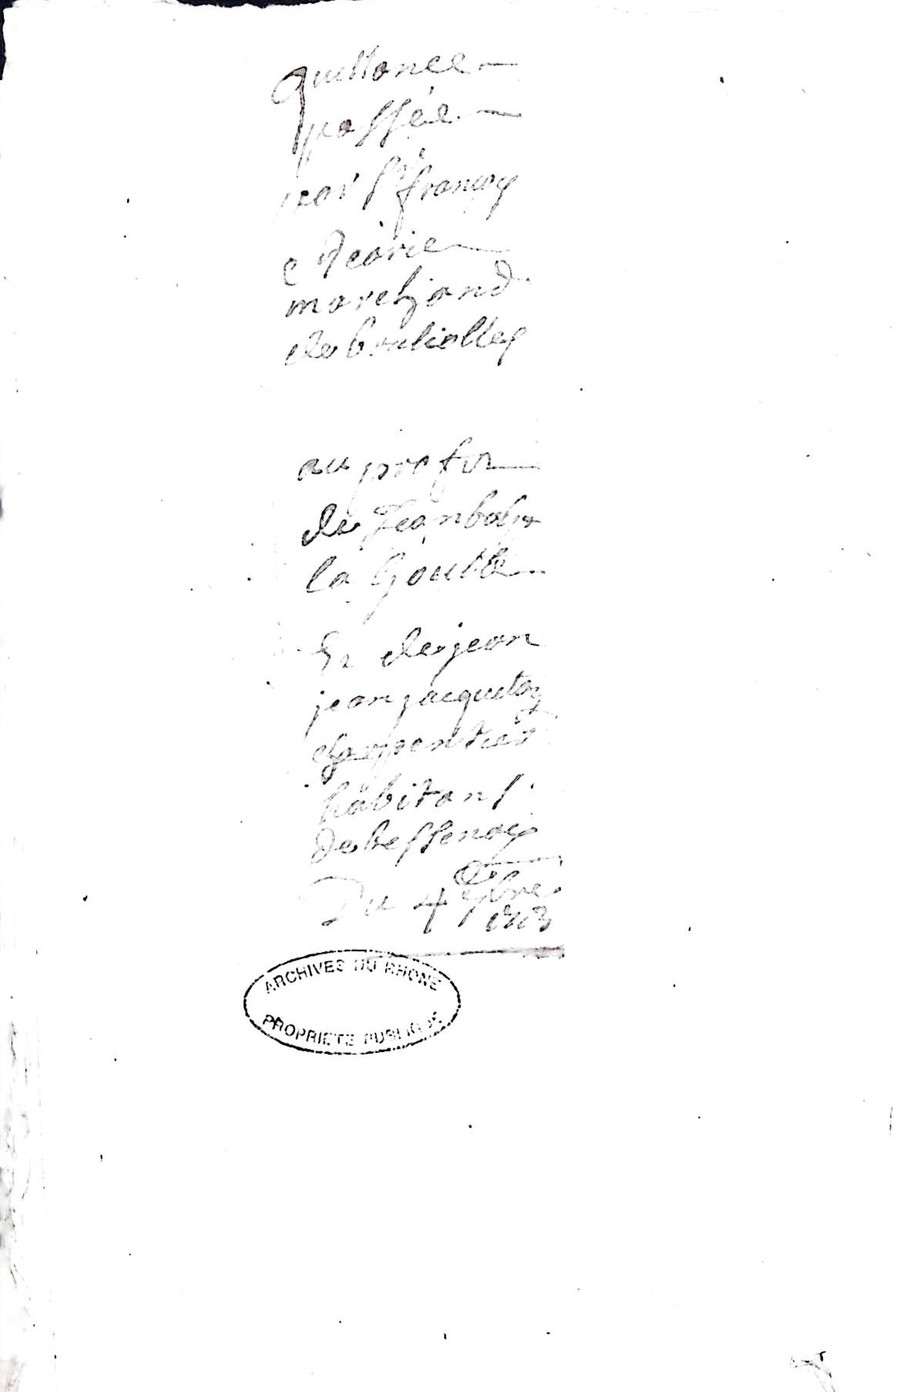 quittance
passée
par Sr françois
marchand
de
au profit
de Jean
la Goutte
Et de jean
jean jacqueton
charpentier
habitans
de bessenay
Du 4 9bre
ARCHIVES DU RHONE
PROPRIETE PUBLIQUE